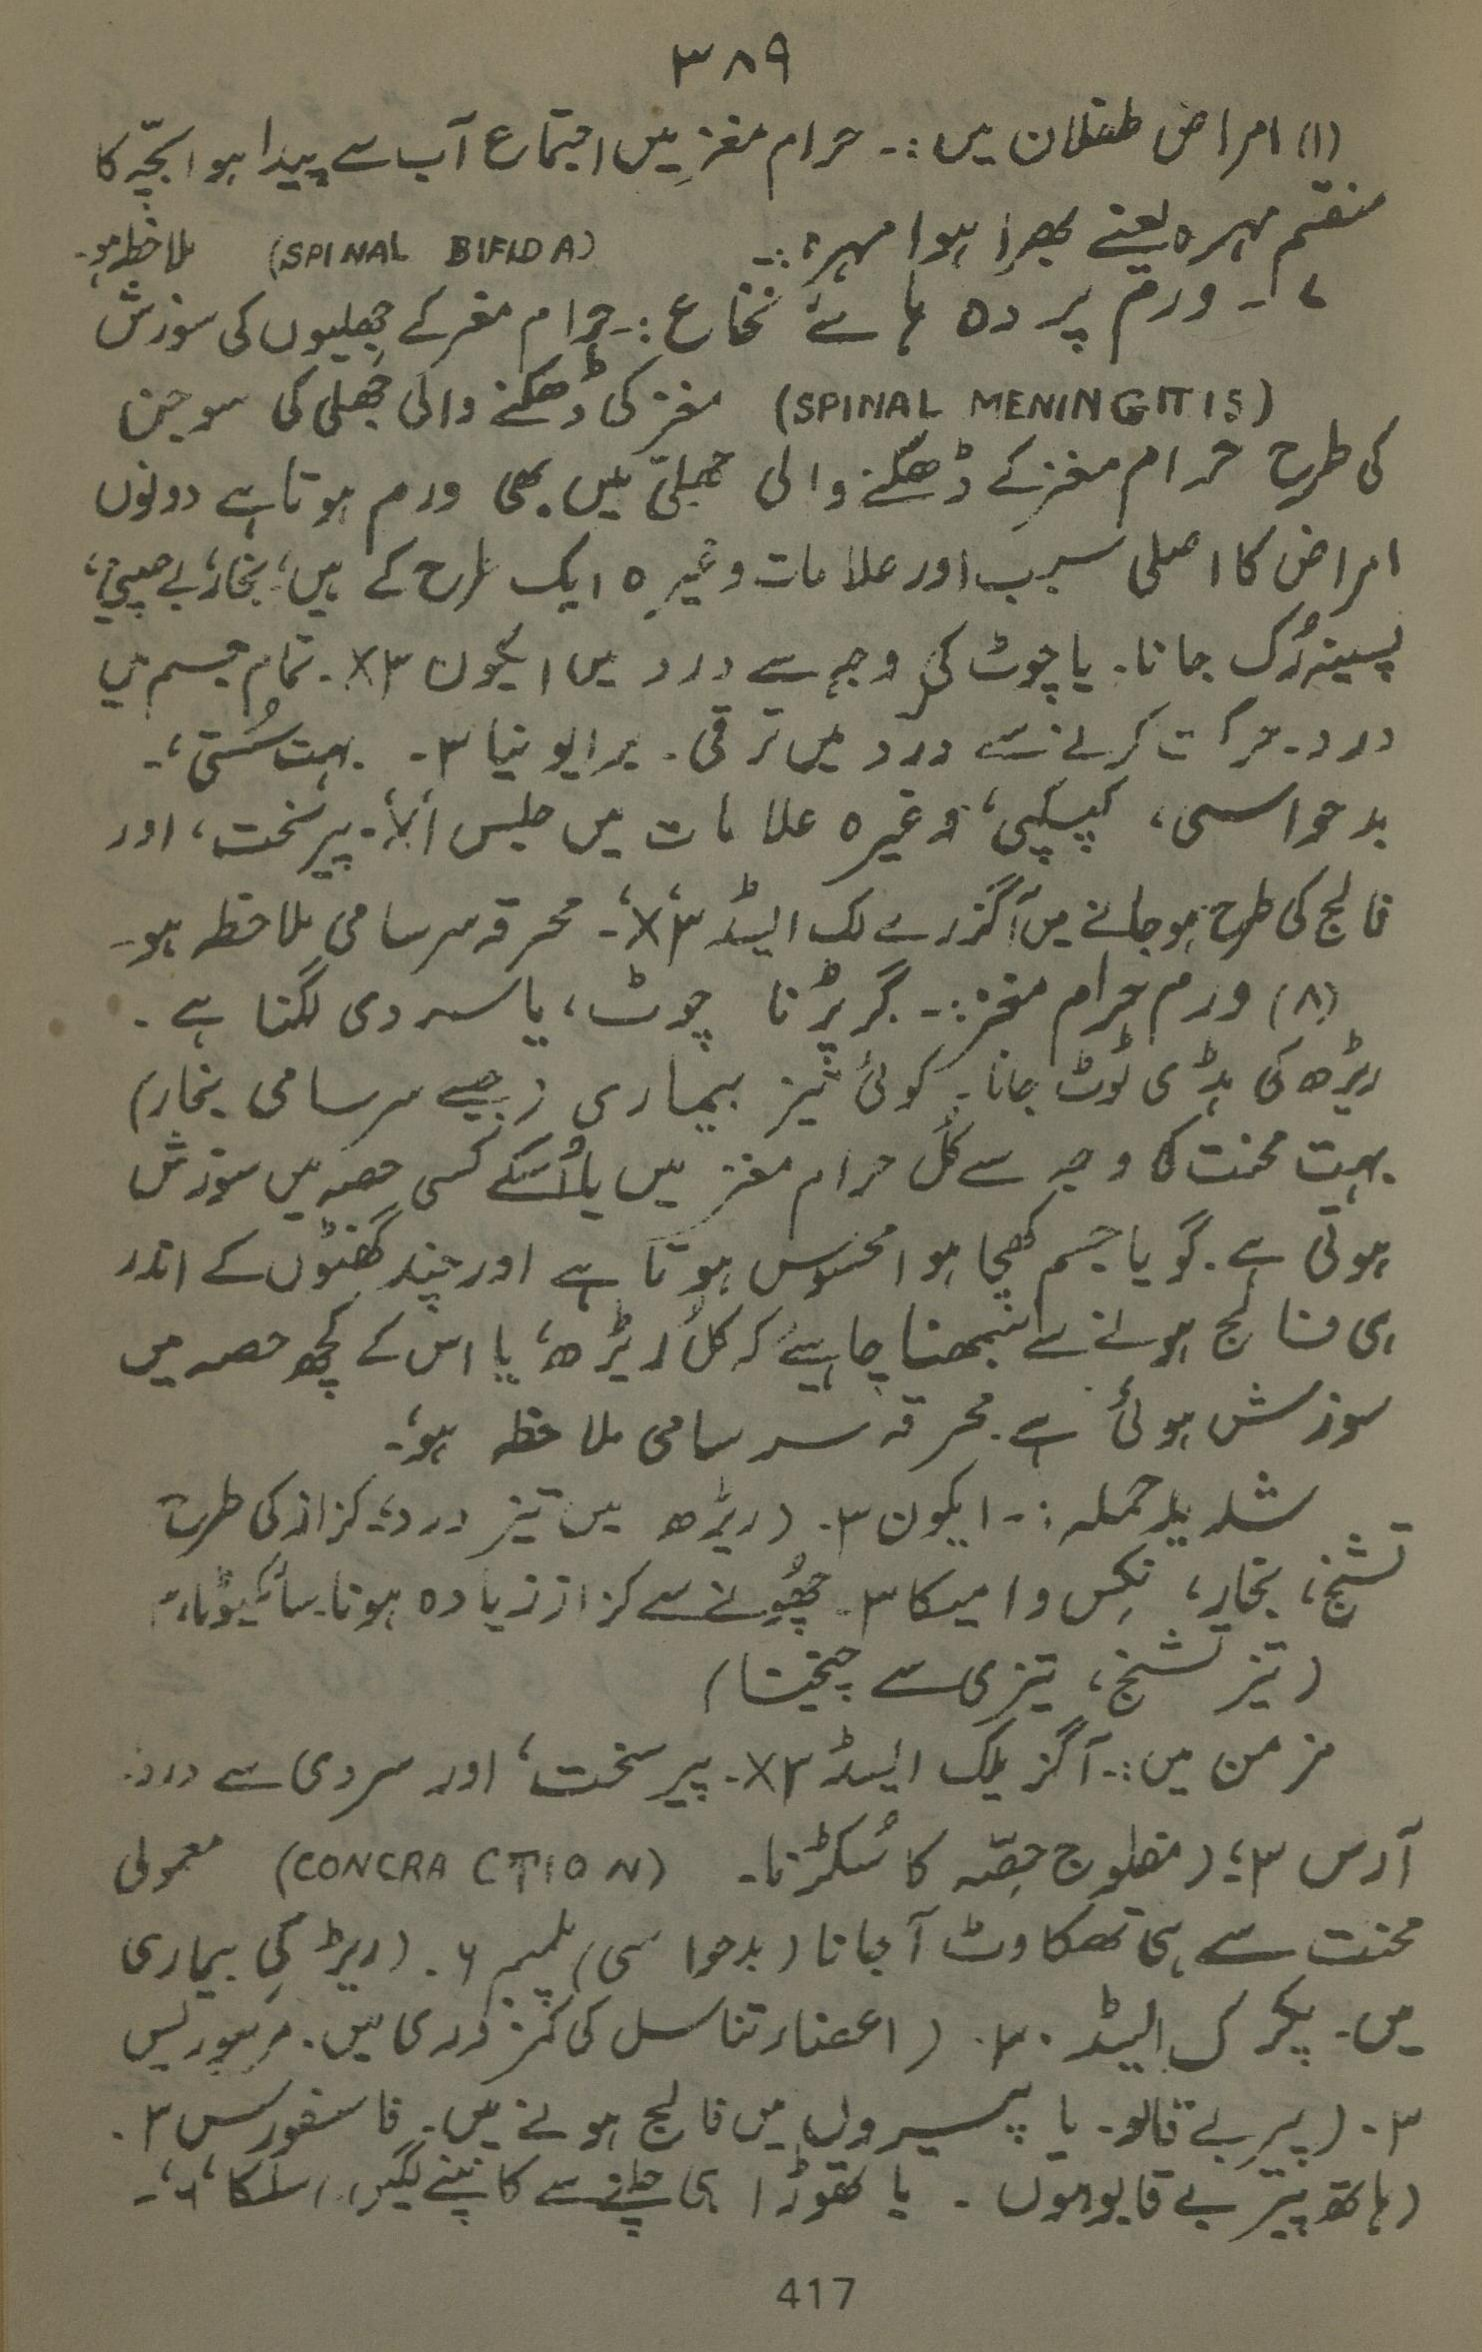 ۳۸۹
(۱) امراض طفلان میں :۔ حرام مغز میں اجتماع آب سے پیدا ہوا بچّہ کا
منقسم مہرہ یعنے بھرا ہوا مہرہ :۔ (SPINAL BIFIDA) ملاحظہ ہو۔
۷ ۔ ورم پردہ ہائے نخاع :۔ حرام مغز کے جھلیوں کی سوزش
(SPINAL MENINGITIS) مغز کی ڈھکنے والی جھلی کی سوجن
کی طرح حرام مغز کے ڈھکنے والی جھلیّ میں بھی ورم ہوتا ہے دونوں
امراض کا اصلی سبب اور علامات وغیرہ ایک طرح کے ہیں، بخار، بے چینی،
پسینہ رُک جانا۔ یا چوٹ کی وجہ سے درد میں ایکون ۳X۔ تمام جسم میں
درد۔ حرکت کرنے سے درد میں ترقی۔ برایونیا ۳۔ بہت سُستی،۔
بدحواسی، کپکپی، وغیرہ علامات میں جلیس ۱X۔ پیر سخت، اور
فالج کی طرح ہوجانے میں آگزے لک ایسڈ ۳X،۔ محرقہ سرسامی ملاحظہ ہو۔
(۸) ورم حرام مغز :۔ گر پڑنا چوٹ، یا سردی لگنا ہے۔
ریڑھ کی ہڈی ٹوٹ جانا۔ کوئی تیز بیماری (جیسے سرسامی بخار)
بہت محنت کا وجہ سے کُل حرام مغز میں یا اُسکے کسی حصہ میں سوزش
ہوتی ہے۔ گویا جسم کھچا ہوا محسوس ہوتا ہے اور چند گھنٹوں کے اندر
ہی فالج ہونے سے سمجھنا چاہیئے کہ کل ریڑھ، یا اس کے کچھ حصہ میں
سوزش ہوئی ہے۔ محرقہ سرسامی ملاحظہ ہو،۔
شدید حملہ :۔ ایکون ۳۔ (ریڑھ میں تیز درد، کزاز کی طرح
تشنج، بخار، نکس وامیکا ۳۔ چھُونے سے کزاز زیادہ ہونا۔ سائکیوٹا
(تیز تشنج، تیزی سے چیخنا)
مزمن میں :۔ آگزیلک ایسڈ ۳X۔ پیر سخت، اور سردی سے درد۔
آرس ۳، (مفلوج حصّہ کا سُکڑنا۔ (CONCRACTION) معمولی
محنت سے ہی تھکاوٹ آجانا (بدحواسی) پلمبم ۶۔ (ریڑ کی بیماری
میں۔ پکرک ایسڈ ۳۰۔ (اعضاء تناسل کی کمزوری میں۔ مرسورلیس
۳۔ (پیر بے قابو۔ یا پیروں میں فالج ہونے میں۔ فاسفورس ۳۔
(ہاتھ پیر بے قابو ہوں۔ یا تھوڑا ہی چلنے سے کانپنے لگیں) سلکا ۶،۔
417